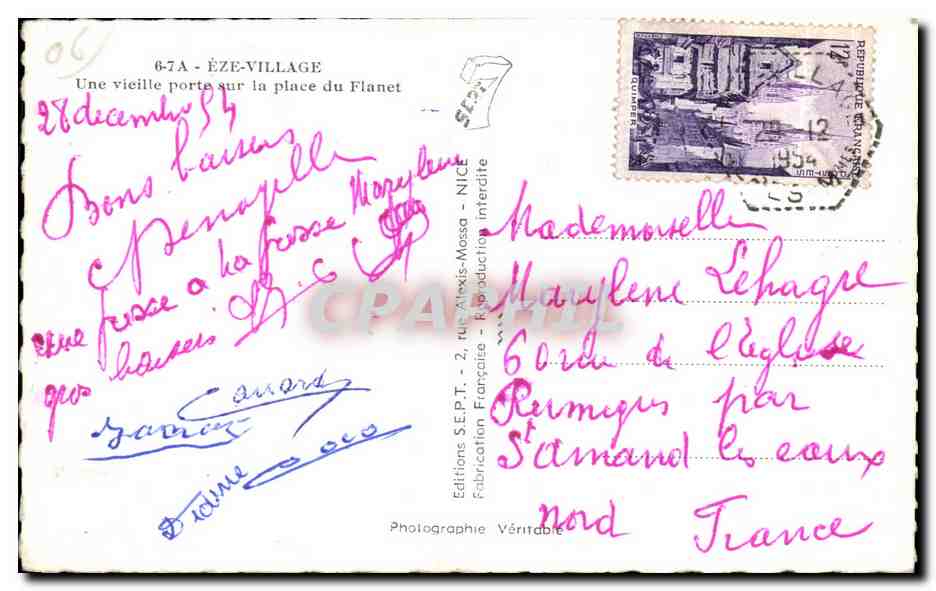 06
6-7A - ÈZE-VILLAGE
Une vieille porte sur la place du Flanet
28 decembre 54
Bons baisers
une fesse a la fesse Marylene
gros baisers
Canard
Didine Coco
Photographie Véritable
Editions S.E.P.T. - 2, rue Alexis-Mossa - NICE
Fabrication Française - Reproduction interdite
SEPT
CPAPHIL
RÉPUBLIQUE FRANÇAISE
12F
POSTES
QUIMPER
29-12
1954
Mademoiselle
Marylene Lehagre
60 rue de l'Eglise
Rumegies par
St Amand les eaux
nord
France